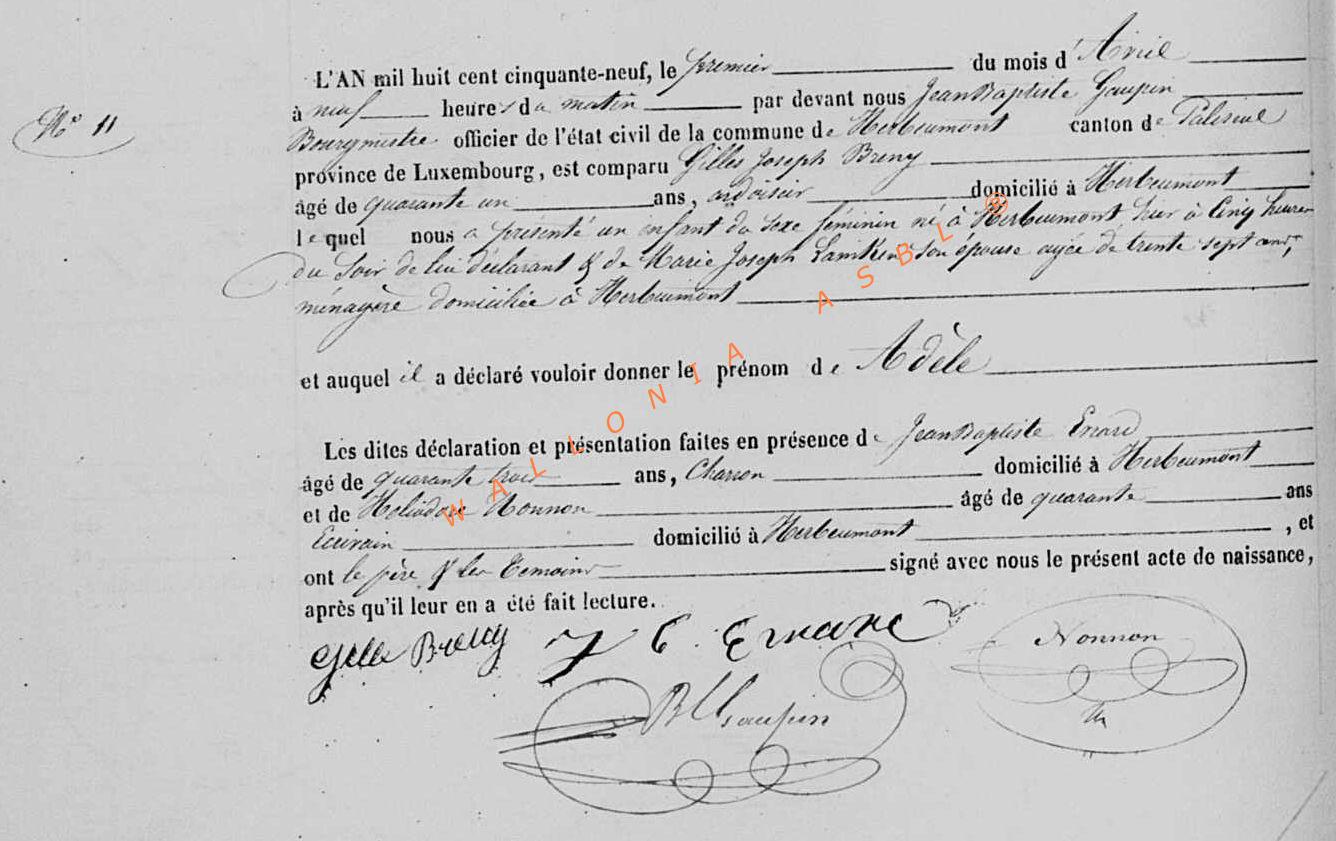 N° 11
L'AN mil huit cent cinquante-neuf, le premier du mois d'Avril
à neuf heures du matin par devant nous Jean Baptiste Gaupin
Bourgmestre officier de l'état civil de la commune de Herbeumont canton de Paliseul
province de Luxembourg, est comparu Gilles Joseph Breny
âgé de quarante un ans, ardoisier domicilié à Herbeumont
lequel nous a présenté un enfant du sexe féminin né à Herbeumont hier à Cinq heures
du Soir de lui déclarant & de Marie Joseph Lamkin son épouse agée de trente sept ans,
ménagère domiciliée à Herbeumont
et auquel il a déclaré vouloir donner le prénom de Adèle
Les dites déclaration et présentation faites en présence de Jean Baptiste Erard
âgé de quarante trois ans, Charron domicilié à Herbeumont
et de Héliodore Nonnon âgé de quarante ans
Ecrivain domicilié à Herbeumont, et
ont le père & les témoins signé avec nous le présent acte de naissance,
après qu'il leur en a été fait lecture.
Gille Breny J B Erard Nonnon
JB Gaupin
WALLONIA ASBL ®